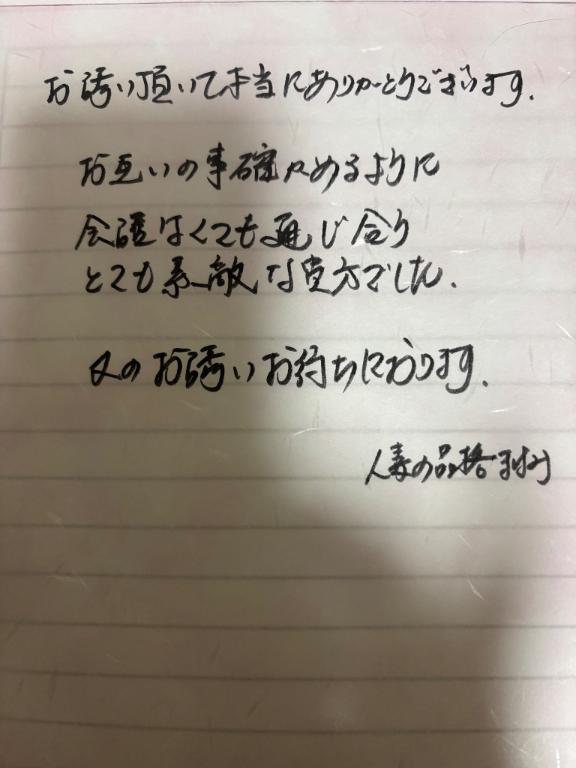 お誘い頂いて本当にありがとうございます.
お互いの事確かめるように
会話はくても通じ合り
とても素敵な貴方でした.
又のお誘いお待ちにおります.
人妻の品格